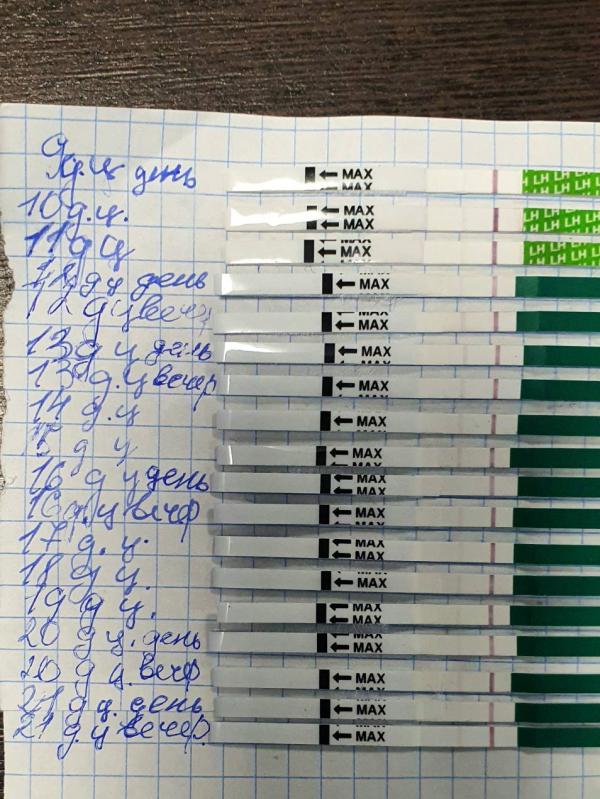 9 д.ц день ← MAX LH LH LH
10 д.ц. ← MAX LH LH LH
11 д ц ← MAX LH LH LH
12 д ц день ← MAX
12 д ц вечер ← MAX
13 д ц день ← MAX
13 д.ц вечер ← MAX
14 д.ц ← MAX
15 д ц ← MAX
16 д ц день ← MAX
16 д.ц вечер ← MAX
17 д.ц. ← MAX
18 д ц. ← MAX
19 д ц. ← MAX
20 д ц. день ← MAX
20 д ц. вечер ← MAX
21 д ц. день ← MAX
21 д.ц вечер. ← MAX